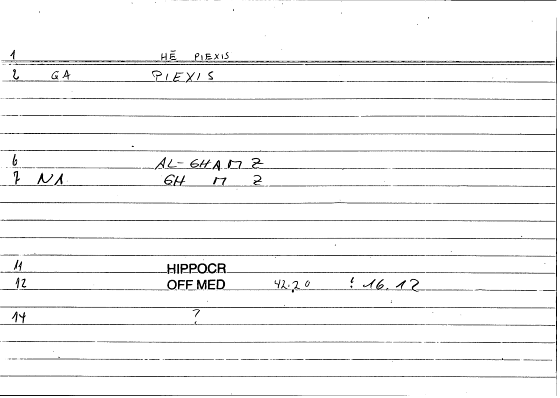 1 HĒ PIEXIS
2 GA PIEXIS
6 AL-GHAMZ
7 NA GH M Z
11 HIPPOCR
12 OFF MED 42.20 ! 16.12
14 ?